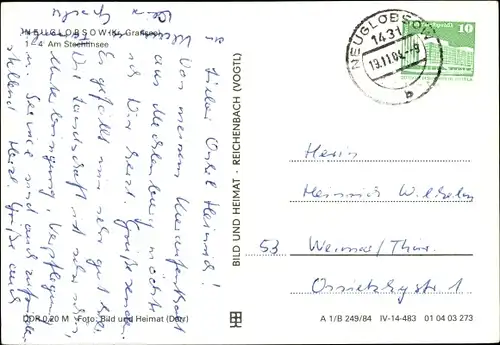 NEUGLOBSOW (Kr. Gransee)
1-4 Am Stechlinsee
Lieber Onkel Heinrich!
Von meinem Kuraufenthalt
aus Mecklenburg möchte
ich Dir herzl. Grüße senden.
Es gefällt mir sehr gut hier.
Die Landschaft ist sehr schön,
Unterbringung, Verpflegung
u. Service sind auch zufrieden
stellend. Herzl. Grüße auch
DDR 0,20 M Foto: Bild und Heimat (Dörr)
BILD UND HEIMAT · REICHENBACH (VOGTL)
NEUGLOBSOW
1431
19.11.84-9
b
10
Herrn
Heinrich Wilhelm
53 Weimar/Thür.
Ossietzkystr 1
A 1/B 249/84 IV-14-483 01 04 03 273